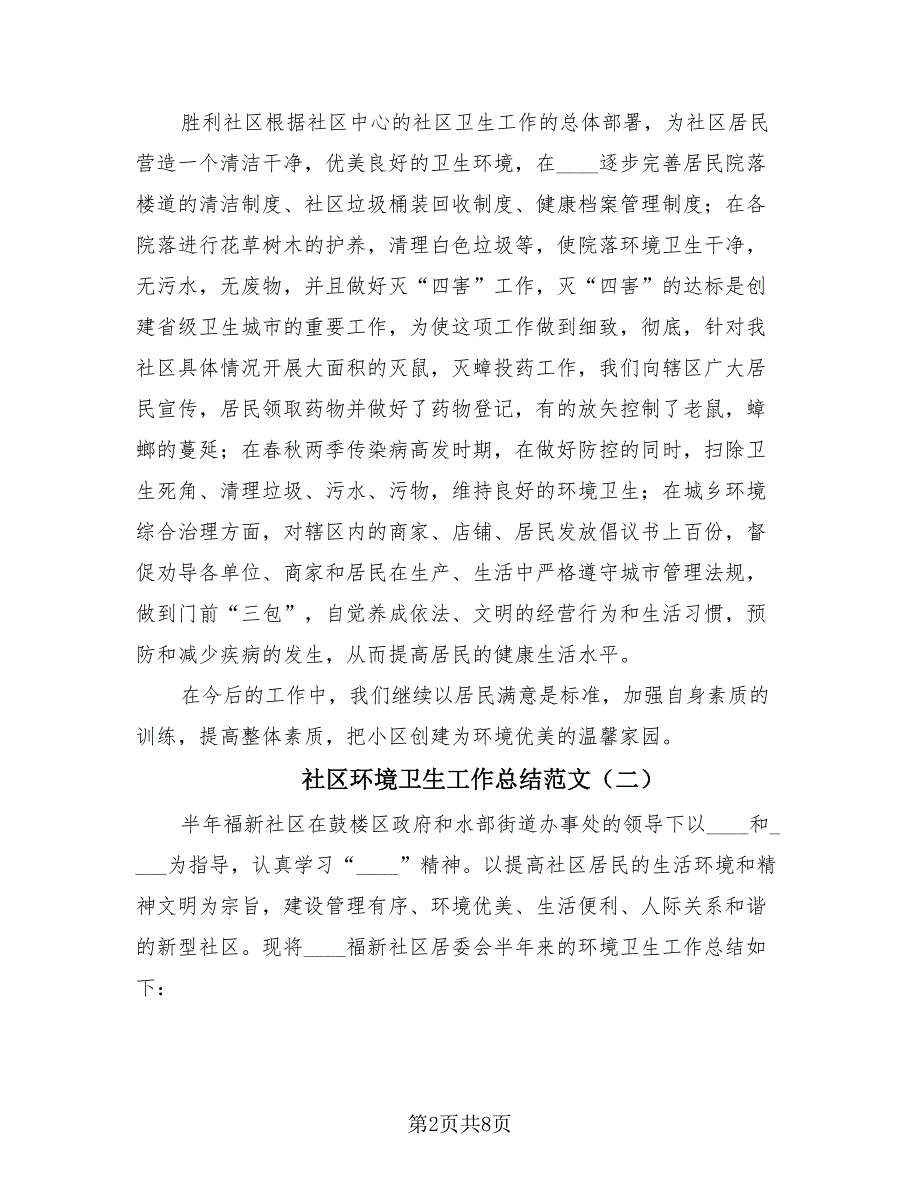 胜利社区根据社区中心的社区卫生工作的总体部署，为社区居民
营造一个清洁干净，优美良好的卫生环境，在____逐步完善居民院落
楼道的清洁制度、社区垃圾桶装回收制度、健康档案管理制度；在各
院落进行花草树木的护养，清理白色垃圾等，使院落环境卫生干净，
无污水，无废物，并且做好灭“四害”工作，灭“四害”的达标是创
建省级卫生城市的重要工作，为使这项工作做到细致，彻底，针对我
社区具体情况开展大面积的灭鼠，灭蟑投药工作，我们向辖区广大居
民宣传，居民领取药物并做好了药物登记，有的放矢控制了老鼠，蟑
螂的蔓延；在春秋两季传染病高发时期，在做好防控的同时，扫除卫
生死角、清理垃圾、污水、污物，维持良好的环境卫生；在城乡环境
综合治理方面，对辖区内的商家、店铺、居民发放倡议书上百份，督
促劝导各单位、商家和居民在生产、生活中严格遵守城市管理法规，
做到门前“三包”，自觉养成依法、文明的经营行为和生活习惯，预
防和减少疾病的发生，从而提高居民的健康生活水平。
在今后的工作中，我们继续以居民满意是标准，加强自身素质的
训练，提高整体素质，把小区创建为环境优美的温馨家园。
社区环境卫生工作总结范文（二）
半年福新社区在鼓楼区政府和水部街道办事处的领导下以____和_
___为指导，认真学习“____”精神。以提高社区居民的生活环境和精
神文明为宗旨，建设管理有序、环境优美、生活便利、人际关系和谐
的新型社区。现将____福新社区居委会半年来的环境卫生工作总结如
下：
第2页共8页